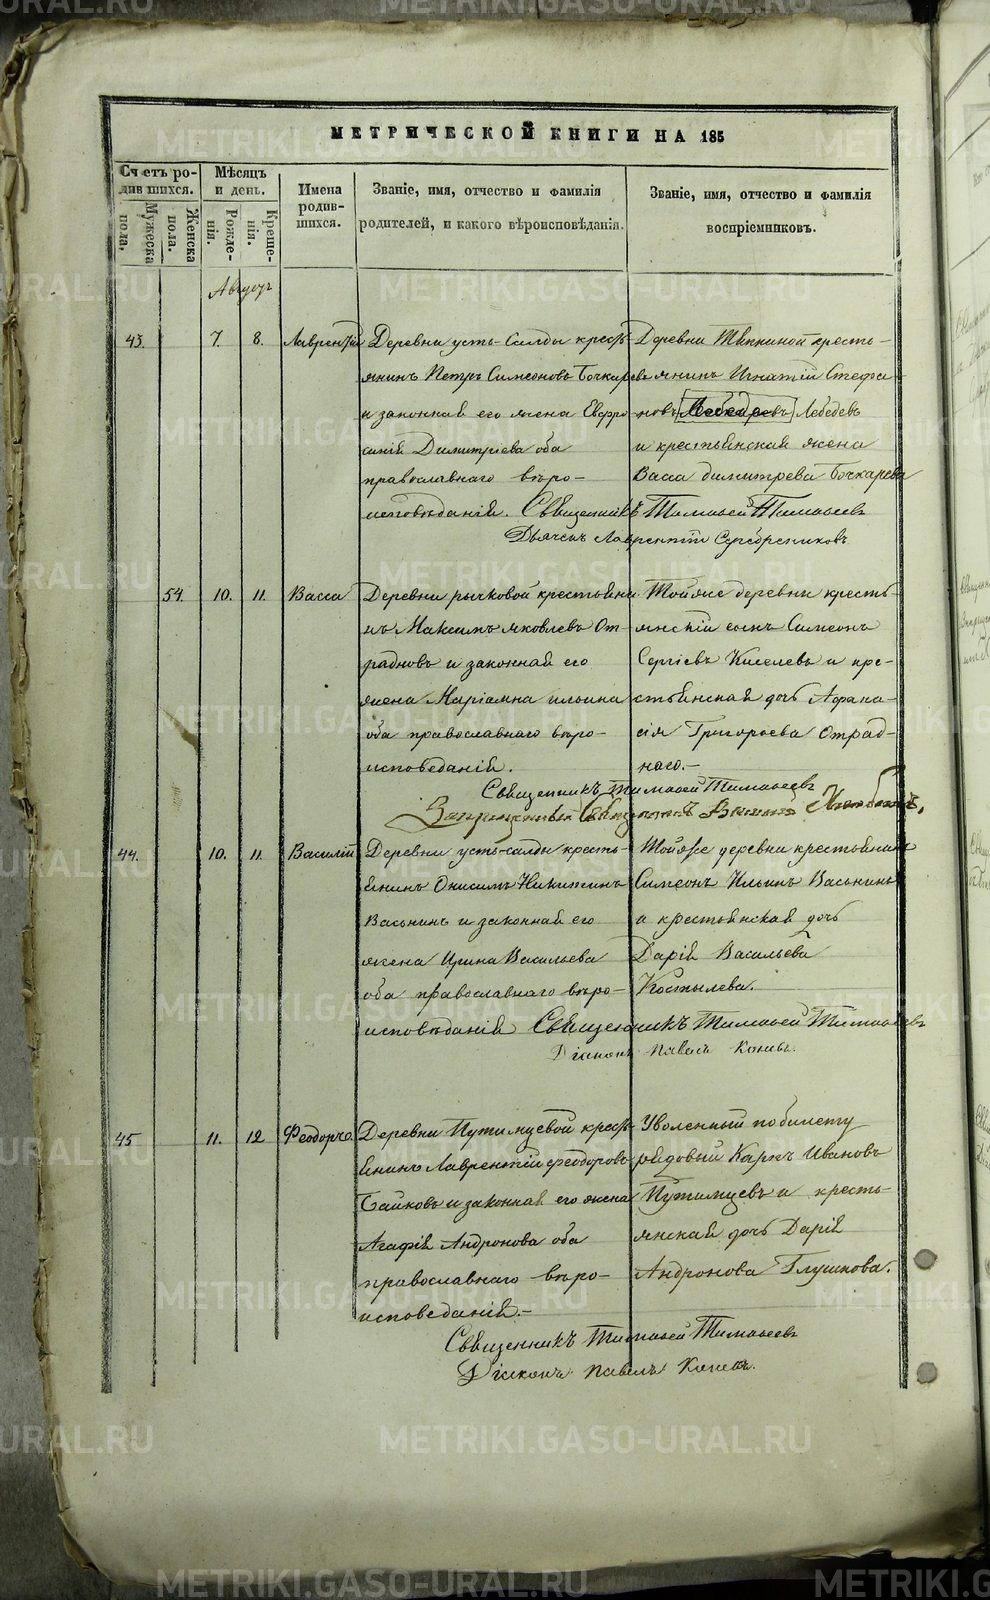 МЕТРИЧЕСКОЙ КНИГИ НА 185
Счетъ родившихся.
Мужеска пола.
Женска пола.
Мѣсяцъ и день.
Рожденія.
Крещенія.
Имена родившихся.
Званіе, имя, отчество и фамилія родителей, и какого вѣроисповѣданія.
Званіе, имя, отчество и фамилія воспріемниковъ.
Августъ
43. 7. 8. Лаврентій
Деревни усть-Салды кресть-
янинъ Петръ Симеоновъ Бочкаревъ
и законная его жена Евфро-
синія Димитріева оба
православнаго вѣро-
исповѣданія.
Деревни кресть-
янинъ Игнатій Стефа-
новъ Лебедевъ
и крестьянская жена
Васса Димитрева Бочкарева
Священникъ Тимофей Тимофеевъ
Дьячекъ Лаврентій Серебренниковъ
54. 10. 11. Васса
Деревни рычковой крестьяни-
нъ Максимъ Яковлевъ От-
радновъ и законная его
жена Маріамна ильина
оба православнаго вѣро-
исповеданія.
Тойже деревни кресть-
янскій сынъ Симеонъ
Сергіевъ Киселевъ и кре-
стьянская дочь Афана-
сія Григорьева Отрад-
наго.-
Священникъ Тимофей Тимофеевъ
44. 10. 11. Василій
Деревни усть-салды кресть-
янинъ Онисимъ Никитинъ
Васьнинъ и законная его
жена Ирина Васильева
оба православнаго вѣро-
исповѣданія
Тойже деревни крестьянинъ
Симеонъ Ильинъ Васьнинъ
и крестьянская дочь
Дарія Васильева
Костылева.
Священникъ Тимофей Тимофеевъ
Діаконъ Павелъ
45 11. 12 Феодоръ
Деревни Путимцевой кресть-
янинъ Лаврентій Феодоровъ
Байковъ и законная его жена
Агафія Андронова оба
православнаго вѣро-
исповеданія.-
Уволенный по билету
рядовый Карпъ Ивановъ
Путимцевъ и кресть-
янская дочь Дарія
Андронова Глушкова.
Священникъ Тимофей Тимофеевъ
Діаконъ Павелъ
METRIKI.GASO-URAL.RU